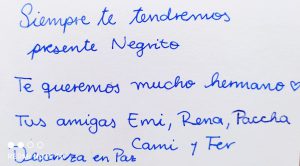 Siempre te tendremos
presente Negrito
Te queremos mucho hermano ♡
Tus amigas Emi, Rena, Paccha
Cami y Fer
Descanza en Paz